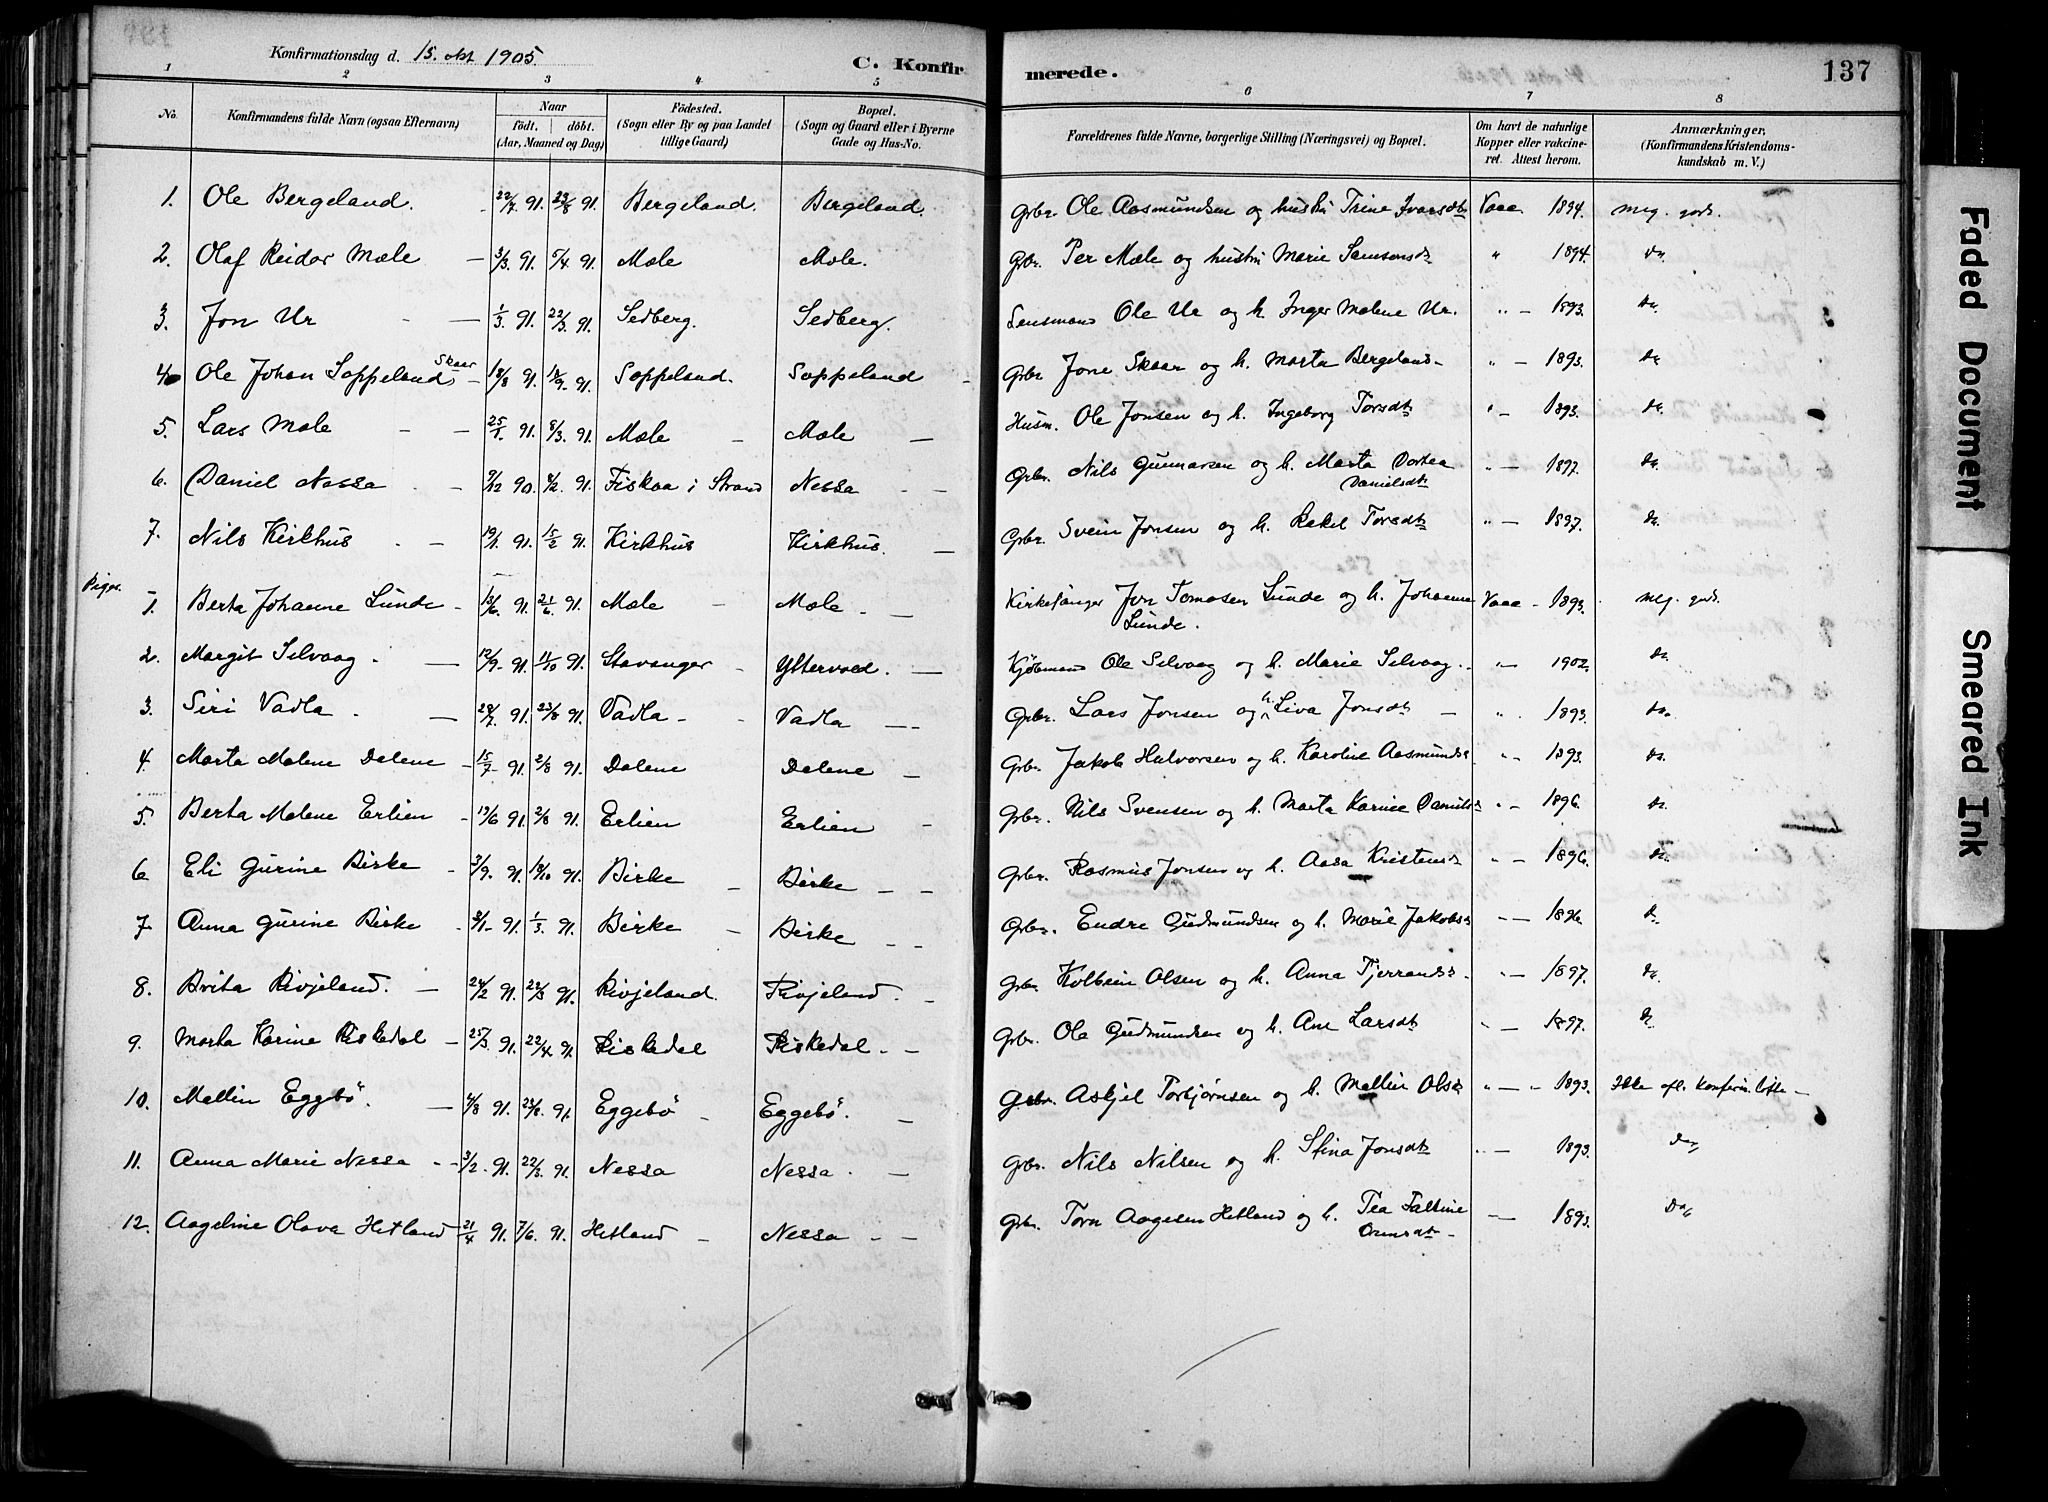 Konfirmationsdag d. 15. okt 1905. C. Konfirmerede. 137
1 2 3 4 5 6 7 8
No. | Konfirmandens fulde Navn (ogsaa Efternavn) | Naar født, døbt. (Aar, Maaned og Dag) | Fødested. (Sogn eller By og paa Landet tillige Gaard) | Bopæl. (Sogn og Gaard eller i Byerne Gade og Hus-No. | Forældrenes fulde Navne, borgerlige Stilling (Næringsvei) og Bopæl. | Om havt de naturlige Kopper eller vakcineret. Attest herom. | Anmærkninger. (Konfirmandens Kristendomskundskab m. V.)
1. Ole Bergeland. 22/7 91. 23/8 91. Bergeland. Bergeland. Grbr. Ole Aasmundsen og hustru Trine Ivarsdt. Vacc. 1894. meg. godt.
2. Olaf Reidar Mæle 3/3 91. 5/4 91. Mæle Mæle. Grbr. Per Mæle og hustru Marie Samsonsd. " 1894. Do.
3. Jon Ur 1/3 91. 22/3 91. Sedberg. Sedberg. Lensmand Ole Ur og h. Inger Malene Ur. " 1893. Do.
4. Ole Johan Soppeland Skaar 18/8 91. 13/9 91. Soppeland. Soppeland Grbr. Jone Skaar og h. Marta Bergeland " 1893. Do.
5. Lars Mæle 25/1 91. 8/3 91. Mæle Mæle Husm. Ole Jonsen og h. Ingeborg Torsdt. " 1893. Do.
6. Daniel Nessa 9/12 90. 8/2 91. Fiskaa i Strand Nessa Grbr. Nils Gunnarsen og h. Marta Dortea Danielsdt. " 1897. Do.
7. Nils Kirkhus 19/1 91. 15/2 91. Kirkhus Kirkhus. Grbr. Svein Jonsen og h. Rakel Torsdt. " 1897. Do.
Piger.
1. Berta Johanne Lunde 13/6 91. 21/6 91. Mæle Mæle. Kirkesanger Jon Tomasen Lunde og h. Johanne Lunde. Vacc 1893. meg. godt.
2. Margit Selvaag. 12/9 91. 11/10 91. Stavanger Yttervoed. Kjøbmand Ole Selvaag og h. Marie Selvaag. " 1902. Do.
3. Siri Vadla. 28/7 91. 23/8 91. Vadla Vadla Grbr. Lars Jonsen og h. Liva Jonsdt " 1893. Do.
4. Marta Malene Dalene 15/7 91. 2/8 91. Dalene Dalene Grbr. Jakob Halvorsen og h. Karoline Aasmundsd. " 1893. Do.
5. Berta Malene Erlien 13/6 91. 2/8 91. Erlien Erlien Grbr. Nils Svensen og h. Marta Karine Danielsd. " 1896. Do.
6. Eli Gurine Birke 3/9 91. 18/10 91. Birke Birke Grbr. Rasmus Jonsen og h. Aasa Kristensd. " 1896. Do.
7. Anna Gurine Birke 8/1 91. 1/3 91. Birke Birke Grbr. Endre Gudmundsen og h. Marie Jakobsd. " 1896. Do.
8. Brita Rivjeland. 24/2 91. 22/3 91. Rivjeland. Rivjeland. Grbr. Kolbein Olsen og h. Anna Tjerrandsd. " 1897. Do.
9. Marta Karine Riskedal 25/3 91. 22/4 91. Riskedal Riskedal. Grbr. Ole Gudmundsen og h. Ane Larsdt " 1897. Do.
10. Mallin Eggebø. 4/8 91. 23/8 91. Eggebø Eggebø. Grbr. Askjel Torbjørnsen og h. Mallin Olsd. " 1893. Ikke afl. konfirm.løfte
11. Anna Marie Nessa 3/2 91. 22/3 91. Nessa Nessa. Grbr. Nils Nilsen og h. Stina Jonsdt. " 1893. Do.
12. Aageline Olava Hetland 21/4 91. 7/6 91. Hetland Nessa Grbr. Torn Aagesen Hetland og h. Tea Taline Ormsdt. 1893. Do.
Faded Document
Smeared Ink